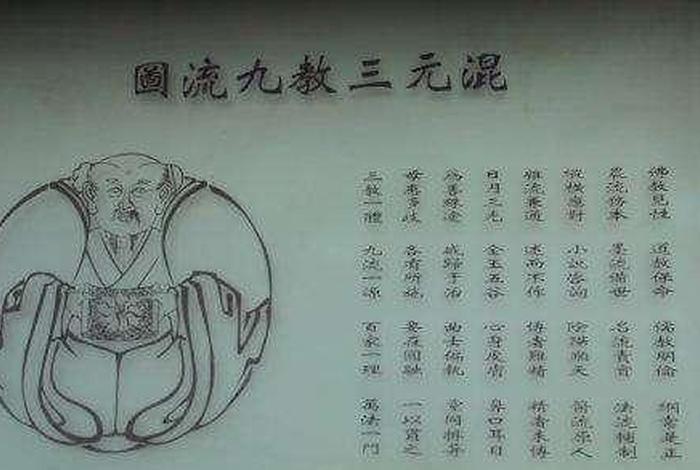 混元三教九流圖
佛教見性 道教保命 儒教明倫 綱常是正
農流務本 墨流備世 名流責實 法流輔制
縱橫應對 小說咨詢 陰陽順天 醫流原人
雜流兼通 述而不作 博者難精 精者未博
日月三光 金玉五谷 心身皮膚 鼻口耳目
為善殊途 咸歸于治 曲士偏執 党同排异
毋患多歧 各有所施 要在圓融 一以貫之
三教一體 九流一源 百家一理 萬法一門